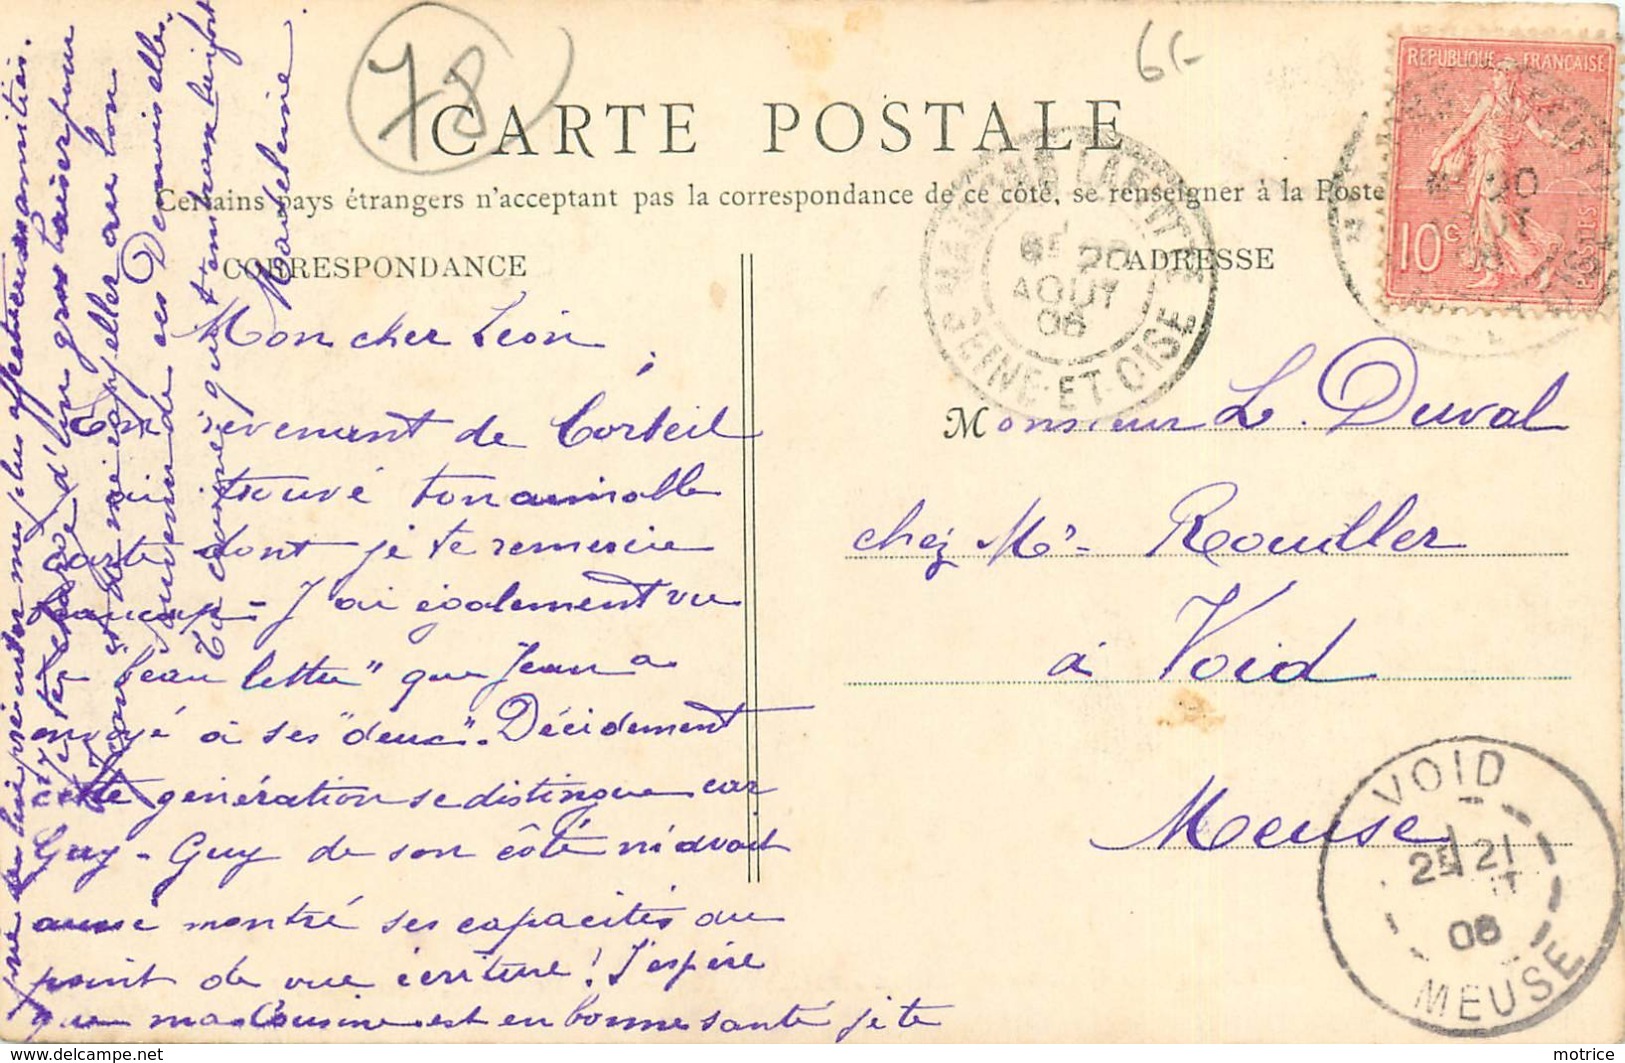 78
6f-
CARTE POSTALE
Certains pays étrangers n'acceptant pas la correspondance de ce côté, se renseigner à la Poste
CORRESPONDANCE
ADRESSE
REPUBLIQUE FRANÇAISE
10c
POSTES
20
AOUT
06
SEINE-ET-OISE
Mon cher Léon,
En revenant de Corbeil
ai trouvé ton aimable
carte dont je te remercie
beaucoup - J'ai également vu
la "beau lettre" que Jean a
envoyé à ses "deux". Décidément
cette génération se distingue car
Guy-Guy de son côté m'avait
aussi montré ses capacités au
point de vue écriture! J'espère
que ma Cousine est en bonne santé je te
prie de lui présenter mes plus affectueuses amitiés.
Je te charge d'un gros baiser pour
et de me rappeler au bon
souvenir de ces Demoiselles.
Ta cousine qui t'embrasse bien fort
Madeleine
Monsieur L. Duval
chez Mr. Rouiller
à Void
Meuse
VOID
2E 21
06
MEUSE
motrice